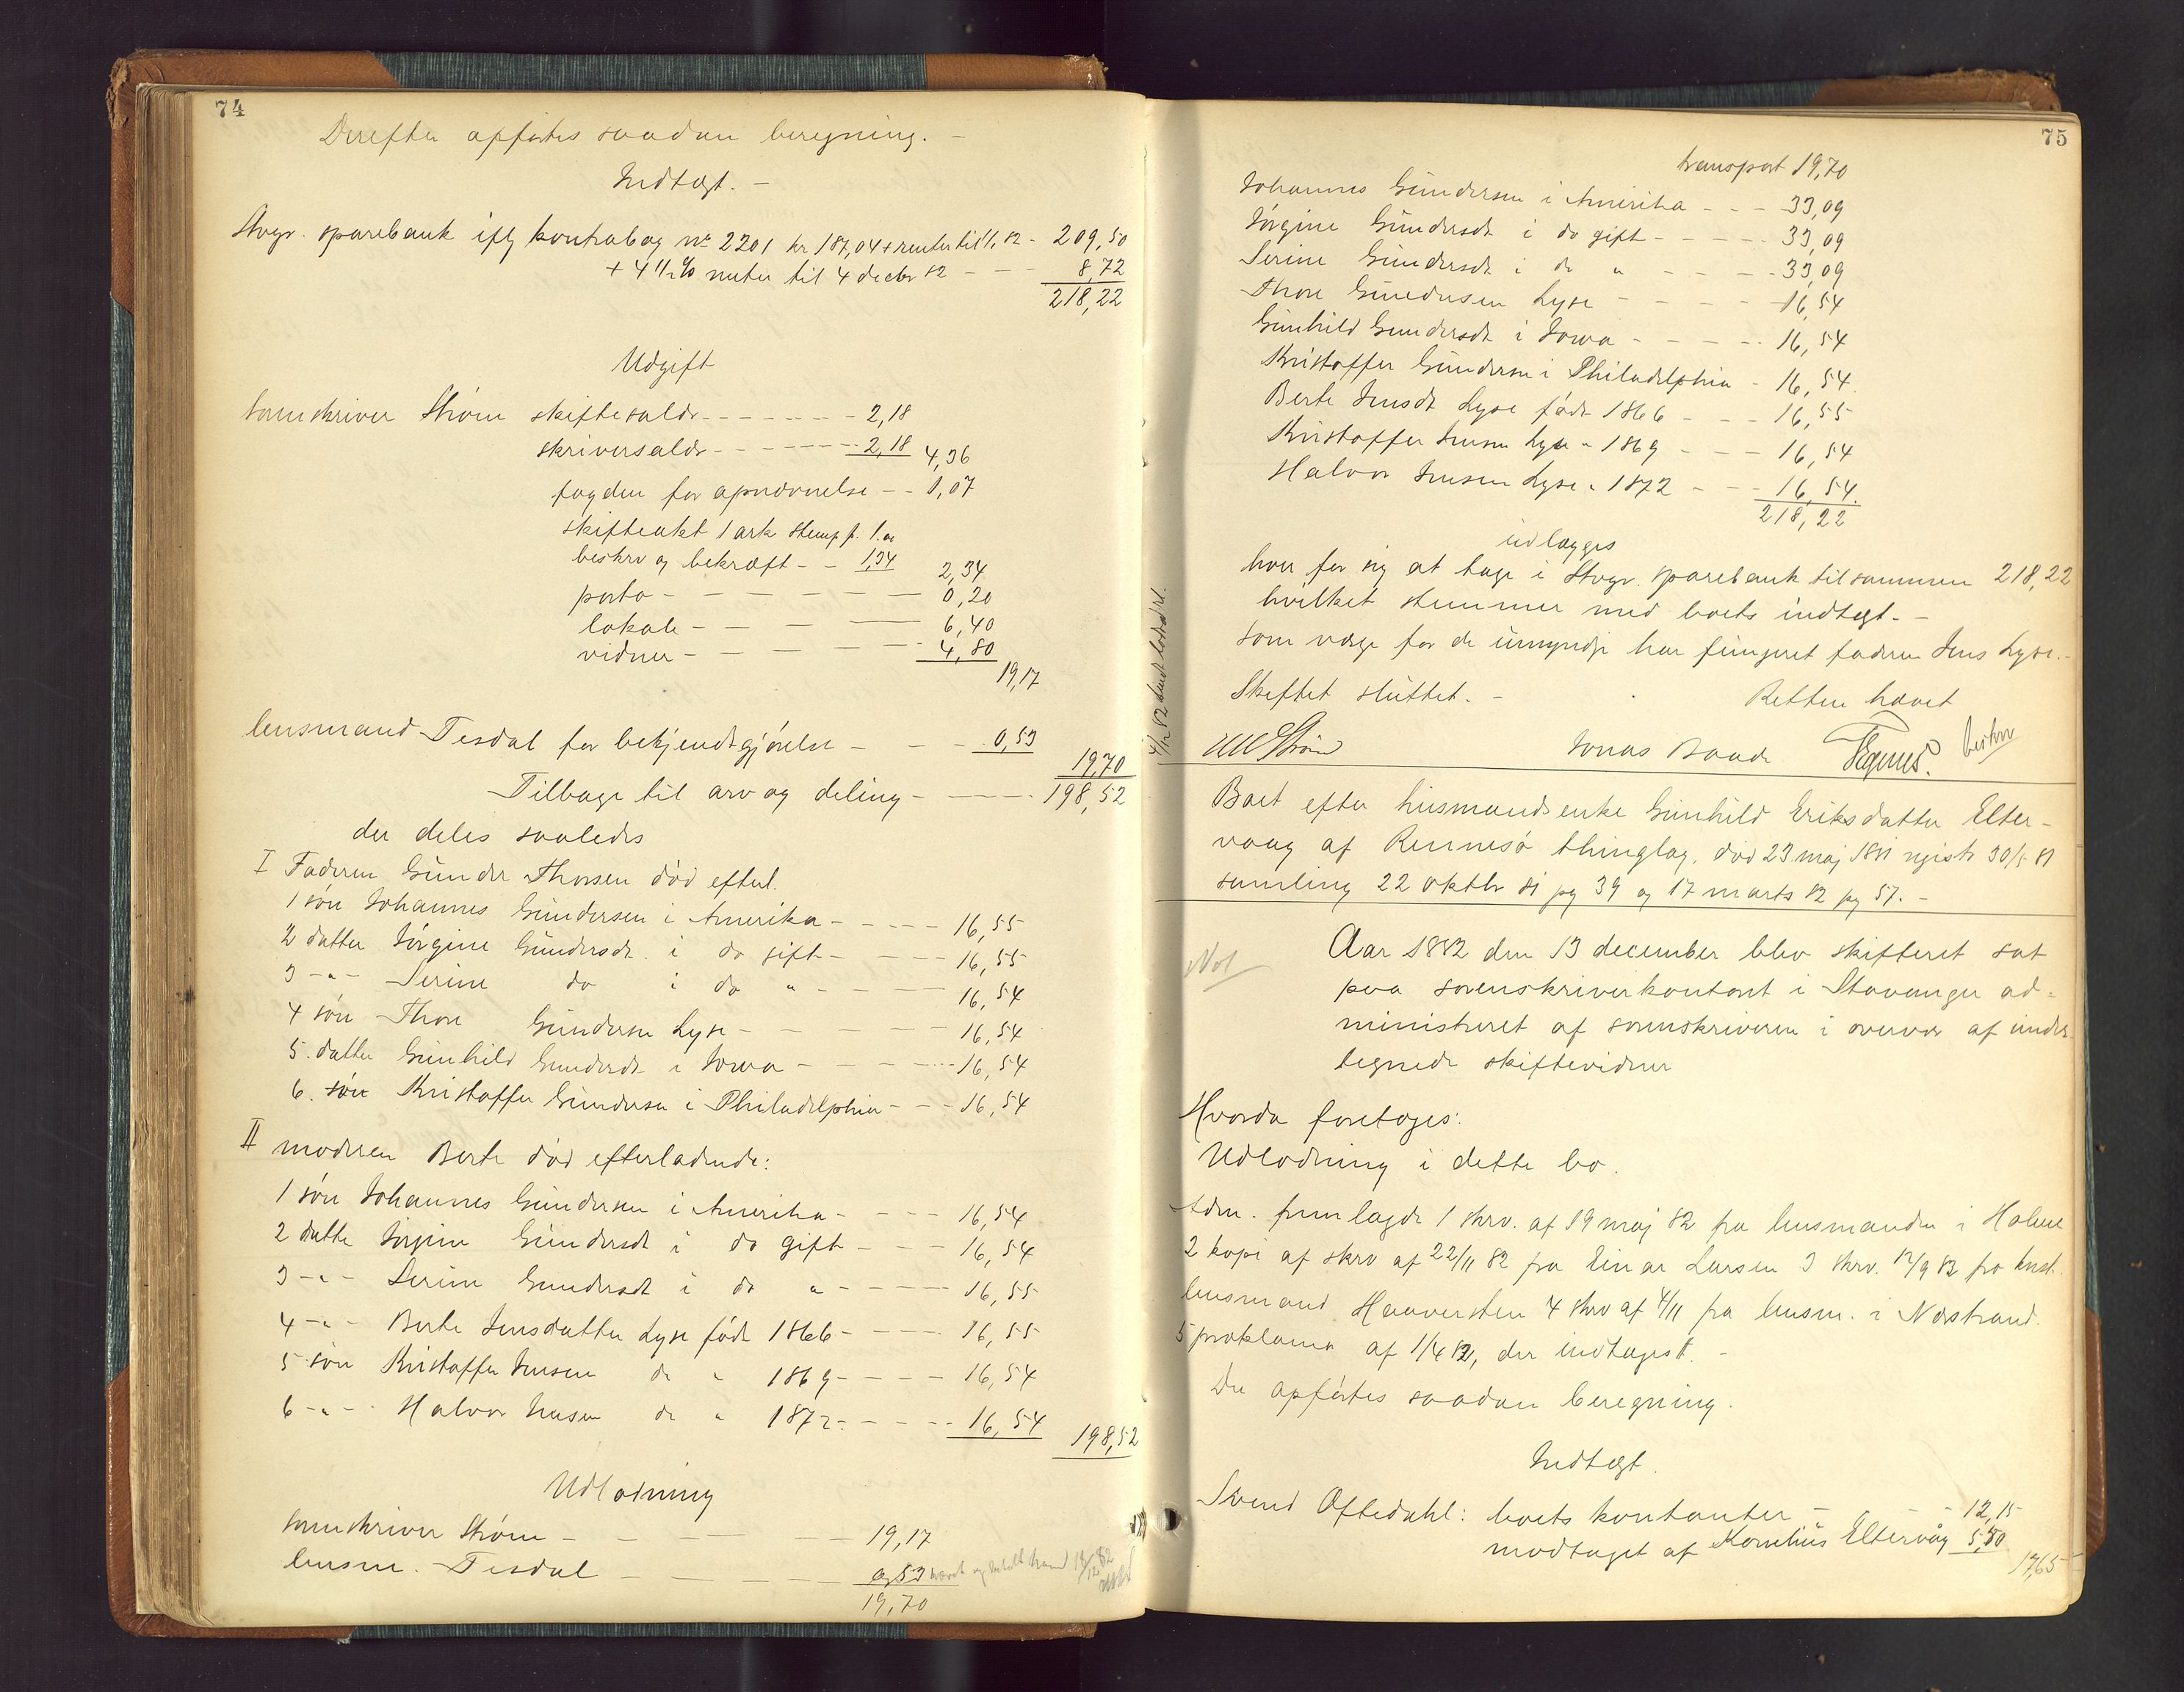 74
Derefter opførtes saadan beregning. -
Indtægt. -
Stvgr. sparebank iflg kontrabog № 2201 kr 187,04 + renter til 1/1 82 - 209,50
+ 4 1/2 % renter til 4 decbr 82 - - - 8,72
218,22
Udgift
sorenskriver Strøm skiftesaldr - - - - - - - 2,18
skriversaldr - - - - - - 2,18 4,36
fogden for opnævnelse - - 1,07
skifteakt 1 ark stemp p. 1.00
beskrv og bekræft - - 1,34 2,34
porto - - - - - - 0,20
lokale - - - - 6,40
vidner - - - - - 4,80
19,17
lensmand Tesdal for bekjendtgjørelse - - - 0,53
19,70
Tilbage til arv og deling - - - - 198,52
der deles saaledes
I Faderen Gunder Thorsen død efterl.
1 søn Johannes Gundersen i Amerika - - - - 16,55
2 datter Jørgine Gundersdt. i do gift - - - - 16,55
3 - " - Serine do i do " - - - - 16,54
4 søn Thore Gundersen Lyse - - - - - 16,54
5. datter Gunhild Gundersdt i Iowa - - - - - 16,54
6. søn Kristoffer Gundersen i Philadelphia - - - 16,54
II moderen Berte død efterladende:
1 søn Johannes Gundersen i Amerika - - - - 16,54
2 datter Jørgine Gundersdt i do gift - - - 16,54
3 - " - Serine Gundersdt i do " - - - - 16,55
4 - " - Berte Jensdatter Lyse født 1866 - - - - 16,55
5 søn Kristoffer Jensen do " 1869 - - - - 16,54
6 - " - Halvor Jensen do " 1872 - - - - 16,54 198,52
Udlodning
sorenskriver Strøm - - - - - 19,17
lensm. Tesdal - - - - - 0,53
19,70
75
transport 19,70
Johannes Gundersen i Amerika - - - 33,09
Jørgine Gundersdt i do gift - - - - - 33,09
Serine Gundersdt i do " - - - - - 33,09
Thore Gundersen Lyse - - - - - 16,54
Gunhild Gundersdt i Iowa - - - - - 16,54
Kristoffer Gundersen i Philadelphia - 16,54
Berte Jensdt Lyse født 1866 - - - 16,55
Kristoffer Jensen Lyse " 1869 - - - 16,54
Halvor Jensen Lyse " 1872 - - - 16,54
218,22
udlægges
hver for sig at tage i Stvgr. sparebank tilsammen 218,22
hvilket stemmer med boets indtægt. -
Som værge for de umyndige har fungeret faderen Jens Lyse. -
Skiftet sluttet. - Retten hævet
Strøm Jonas Baade Tegnes.
Boet efter husmandsenke Gunhild Eriksdatter Elter-
vaag af Rennesø thinglag, død 23 maj 1881 registr 30/5 81
samling 22 oktbr 81 pg 39 og 17 marts 82 pg 57. -
Not
Aar 1882 den 13 december blev skifteret sat
paa sorenskriverkontoret i Stavanger ad-
ministreret af sorenskriveren i overvær af under-
tegnede skiftevidner
Hvorda foretoges:
Udlodning i dette bo.
Adm. fremlagde 1 skrv. af 19 maj 82 fra lensmanden i Holme
2 kopi af skrv af 22/11 82 fra Einar Larsen 3 skrv. 12/9 82 fra knst.
lensmand Haaversten 4 skrv af 4/11 fra lensm. i Nærstrand.
5 proklama af 1/4 82, der indtoges. -
Der opførtes saadan beregning.
Indtægt.
Svend Oftedahl: boets kontanter - - - 12,15
modtaget af Kornelius Eltervåg 5,50
17,65